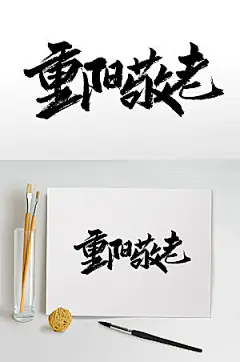 重阳敬老
重阳敬老